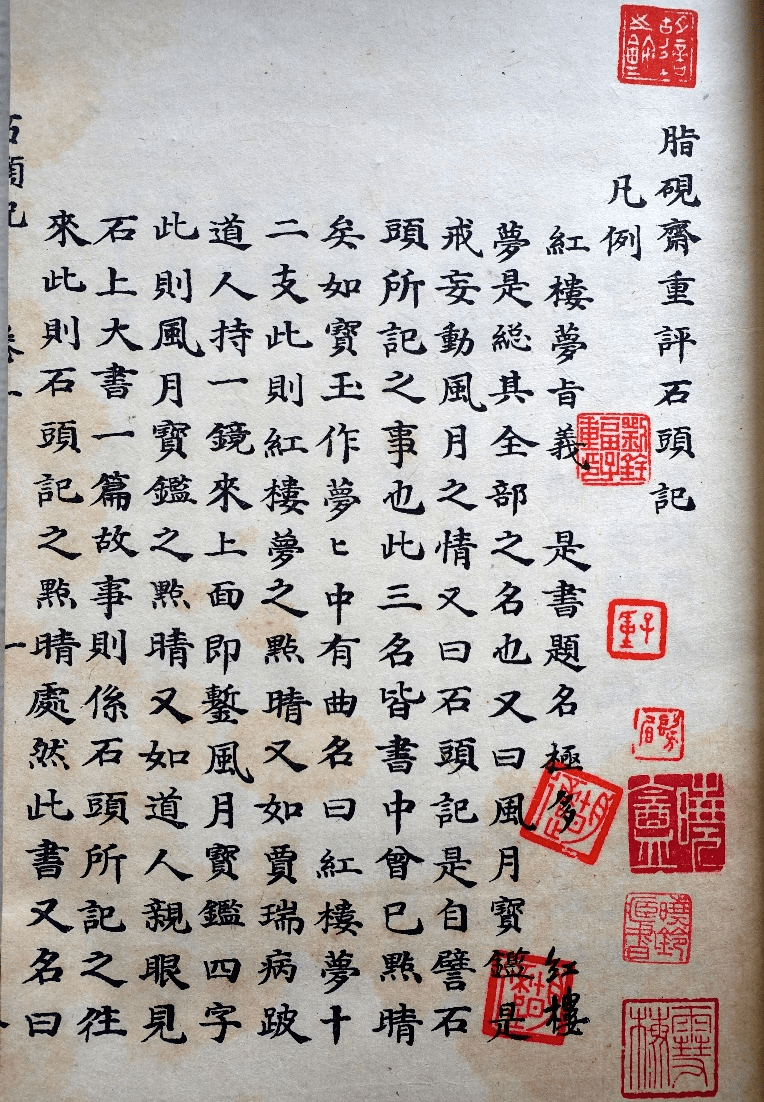 脂硯齋重評石頭記
凡例
紅樓夢旨義 是書題名極多 紅樓
夢是総其全部之名也又曰風月寶鑑是
戒妄動風月之情又曰石頭記是自譬石
頭所記之事也此三名皆書中曾已點晴
矣如寶玉作夢ヒ中有曲名曰紅樓夢十
二支此則紅樓夢之點晴又如賈瑞病跛
道人持一鏡來上面即鏨風月寶鑑四字
此則風月寶鑑之點晴又如道人親眼見
石上大書一篇故事則係石頭所記之往
來此則石頭記之點晴處然此書又名曰
石頭記 卷一 一
劉銓畐子重印
子重